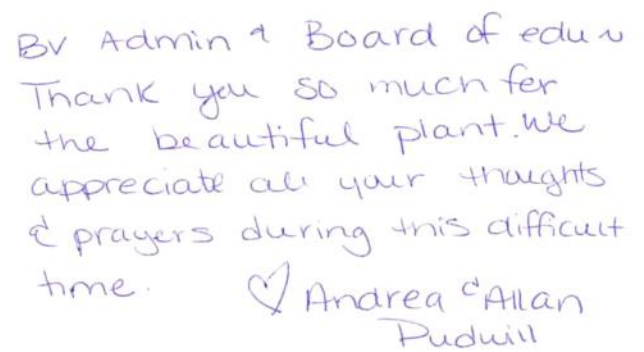 BV Admin & Board of edu
Thank you so much for
the beautiful plant. We
appreciate all your thoughts
& prayers during this difficult
time. ♡ Andrea & Allan
Duduill